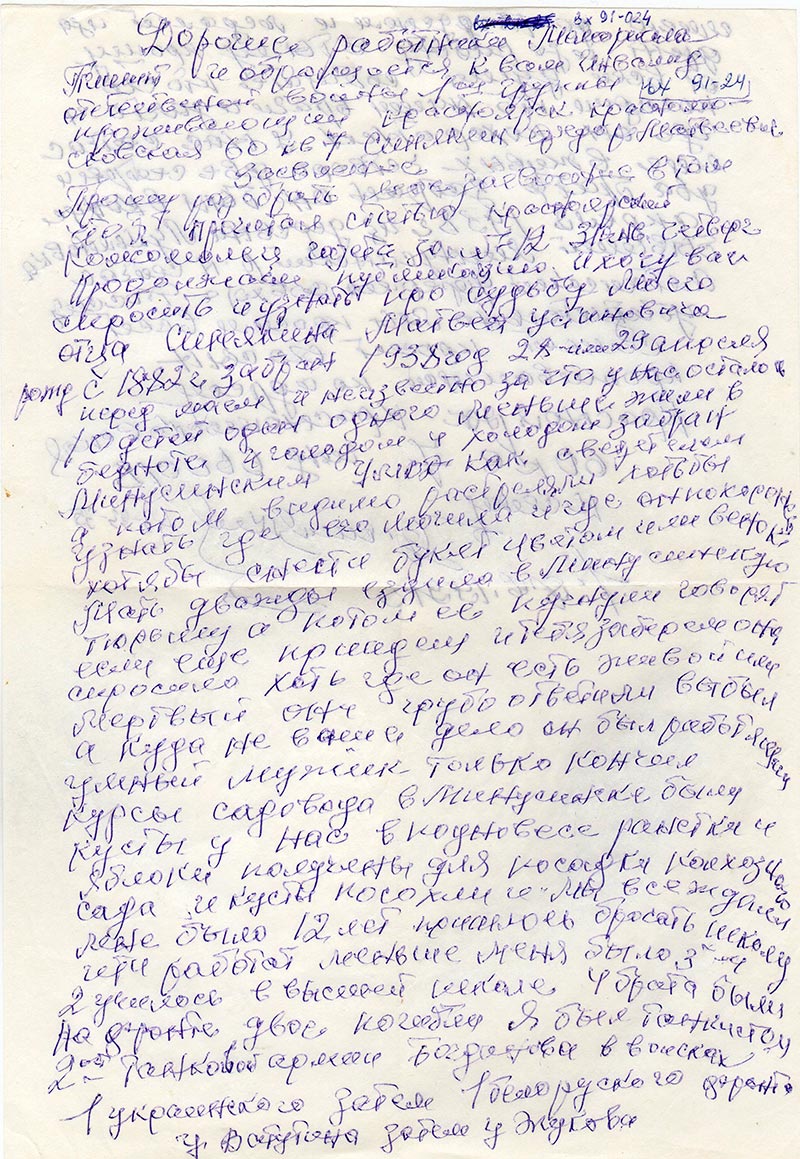 Вх 91-024
Дорогие работники Мемориала
Пишет и обращается к вам инвалид
Вх 91-24
отечественной войны 1ой группы
проживающий Красноярск
60 кв 7 Синякин Матвеевич
Заявление
Прошу разобрать мое заявление в том
что я прочитал статью красноярский
комсомолец газета 31 янв. четверг
продолжаем публикацию и хочу вам
спросить и узнать про судьбу моего
отца Синякина Матвея Устиновича
рожд с 1882 г забран 1938 год 28 или 29 апреля
перед маем и неизвестно за что у нас осталось
10 детей один одного меньше жили в
бедноте и голодом и холодом забрал
Минусинским как свидетелем
а потом видимо растреляли хотябы
узнать где его могила и где он похоронен
хотябы снести букет цветом или венок
Мать дважды ездила в Минусинскую
тюрьму а потом ее пугнули говорят
если еще приедеш и тебя заберем она
спросила хоть где он есть живой или
мертвый они грубо ответили выбыл
а куда не ваше дело он был работящий
умный мужик только кончил
курсы садовода в Минусинске были
кусты у нас в ранетки и
яблоки получены для посадки колхозного
сада и кусты посохли и мы все ждали
мне было 12 лет пришлось бросать школу
ити работат меньше меня было 3
2 училось в высшей школе 4 брата были
на фронте двое погибли Я был танкистом
2ой Танковой армии Богданова в войсках
1 украинского затем 1 белоруского фронта
у Ватутина затем у Жукова